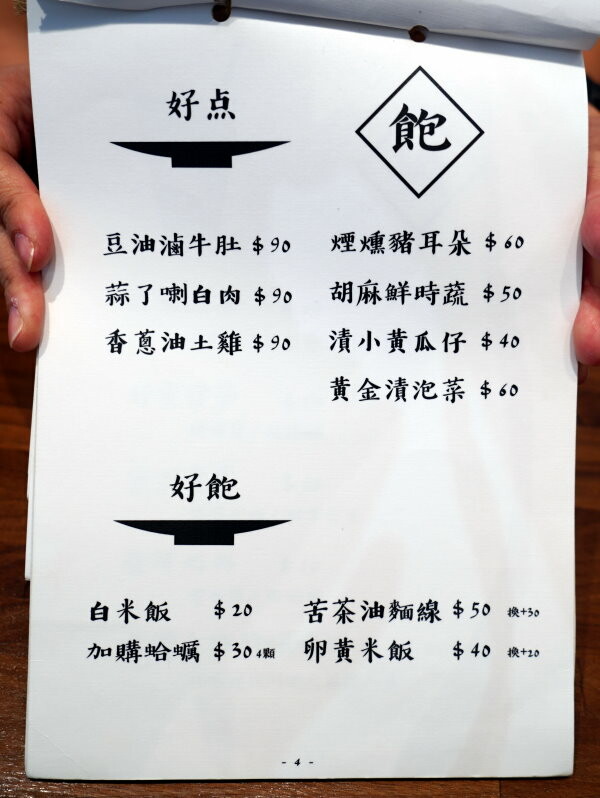 好点
飽
豆油滷牛肚 $90
煙燻豬耳朵 $60
蒜了喇白肉 $90
胡麻鮮時蔬 $50
香蔥油土雞 $90
漬小黃瓜仔 $40
黃金漬泡菜 $60
好飽
白米飯 $20
苦茶油麵線 $50 換+30
加購蛤蠣 $30 4顆
卵黃米飯 $40 換+20
- 4 -